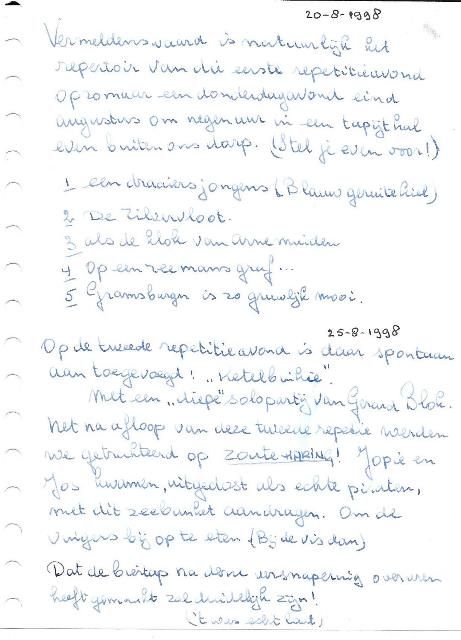 20-8-1998
Vermeldenswaard is natuurlijk het
repertoir van die eerste repetitieavond
op zomaar een donderdagavond eind
augustus om negen uur in een tapijthal
even buiten ons dorp. (Stel je even voor!)
1 een draaiersjongens (Blauw geruite kiel)
2 De Zilvervloot.
3 als de klok van Arnemuiden
4 Op een zeemansgraf...
5 Gramsbergn is zo gruwlijk mooi.
25-8-1998
Op de tweede repetitieavond is daar spontaan
aan toegevoegd! „Ketelbinkie".
Met een „diepe" solopartij van Gerard Blok.
Net na afloop van deze tweede repetie werden
we getrakteerd op ZOUTE HARING! Jopie en
Jos kwamen, uitgedost als echte piraten,
met dit zeebanket aandragen. Om de
vingers bij op te eten (Bij de vis dan)
Dat de biertap na deze versnapering overuren
heeft gemaakt zal duidelijk zijn!
('t was echt laat)